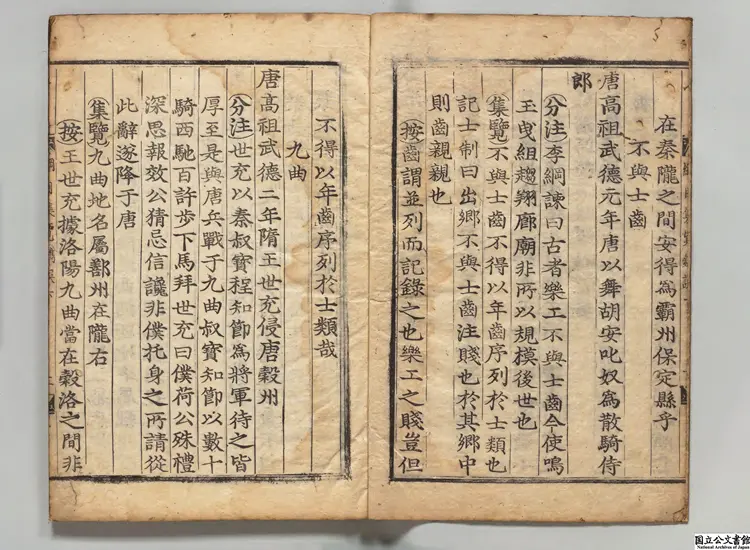 在秦隴之間安得爲霸州保定縣乎
不與士齒
唐高祖武德元年唐以舞胡安叱奴爲散騎侍
郎
分注李綱諫曰古者樂工不與士齒今使鳴
玉曳組趨翔廊廟非所以規模後世也
集覽不與士齒不得以年齒序列於士類也
記士制曰出鄉不與士齒注賤也於其鄉中
則齒親親也
按齒謂並列而記錄之也樂工之賤豈但
不得以年齒序列於士類哉
九曲
唐高祖武德二年隋王世充侵唐穀州
分注世充以秦叔寶程知節爲將軍待之皆
厚至是與唐兵戰于九曲叔寶知節以數十
騎西馳百許步下馬拜世充曰僕荷公殊禮
深思報效公猜忌信讒非僕托身之所請從
此辭遂降于唐
集覽九曲地名屬鄯州在隴右
按王世充據洛陽九曲當在穀洛之間非
国立公文書館
National Archives of Japan